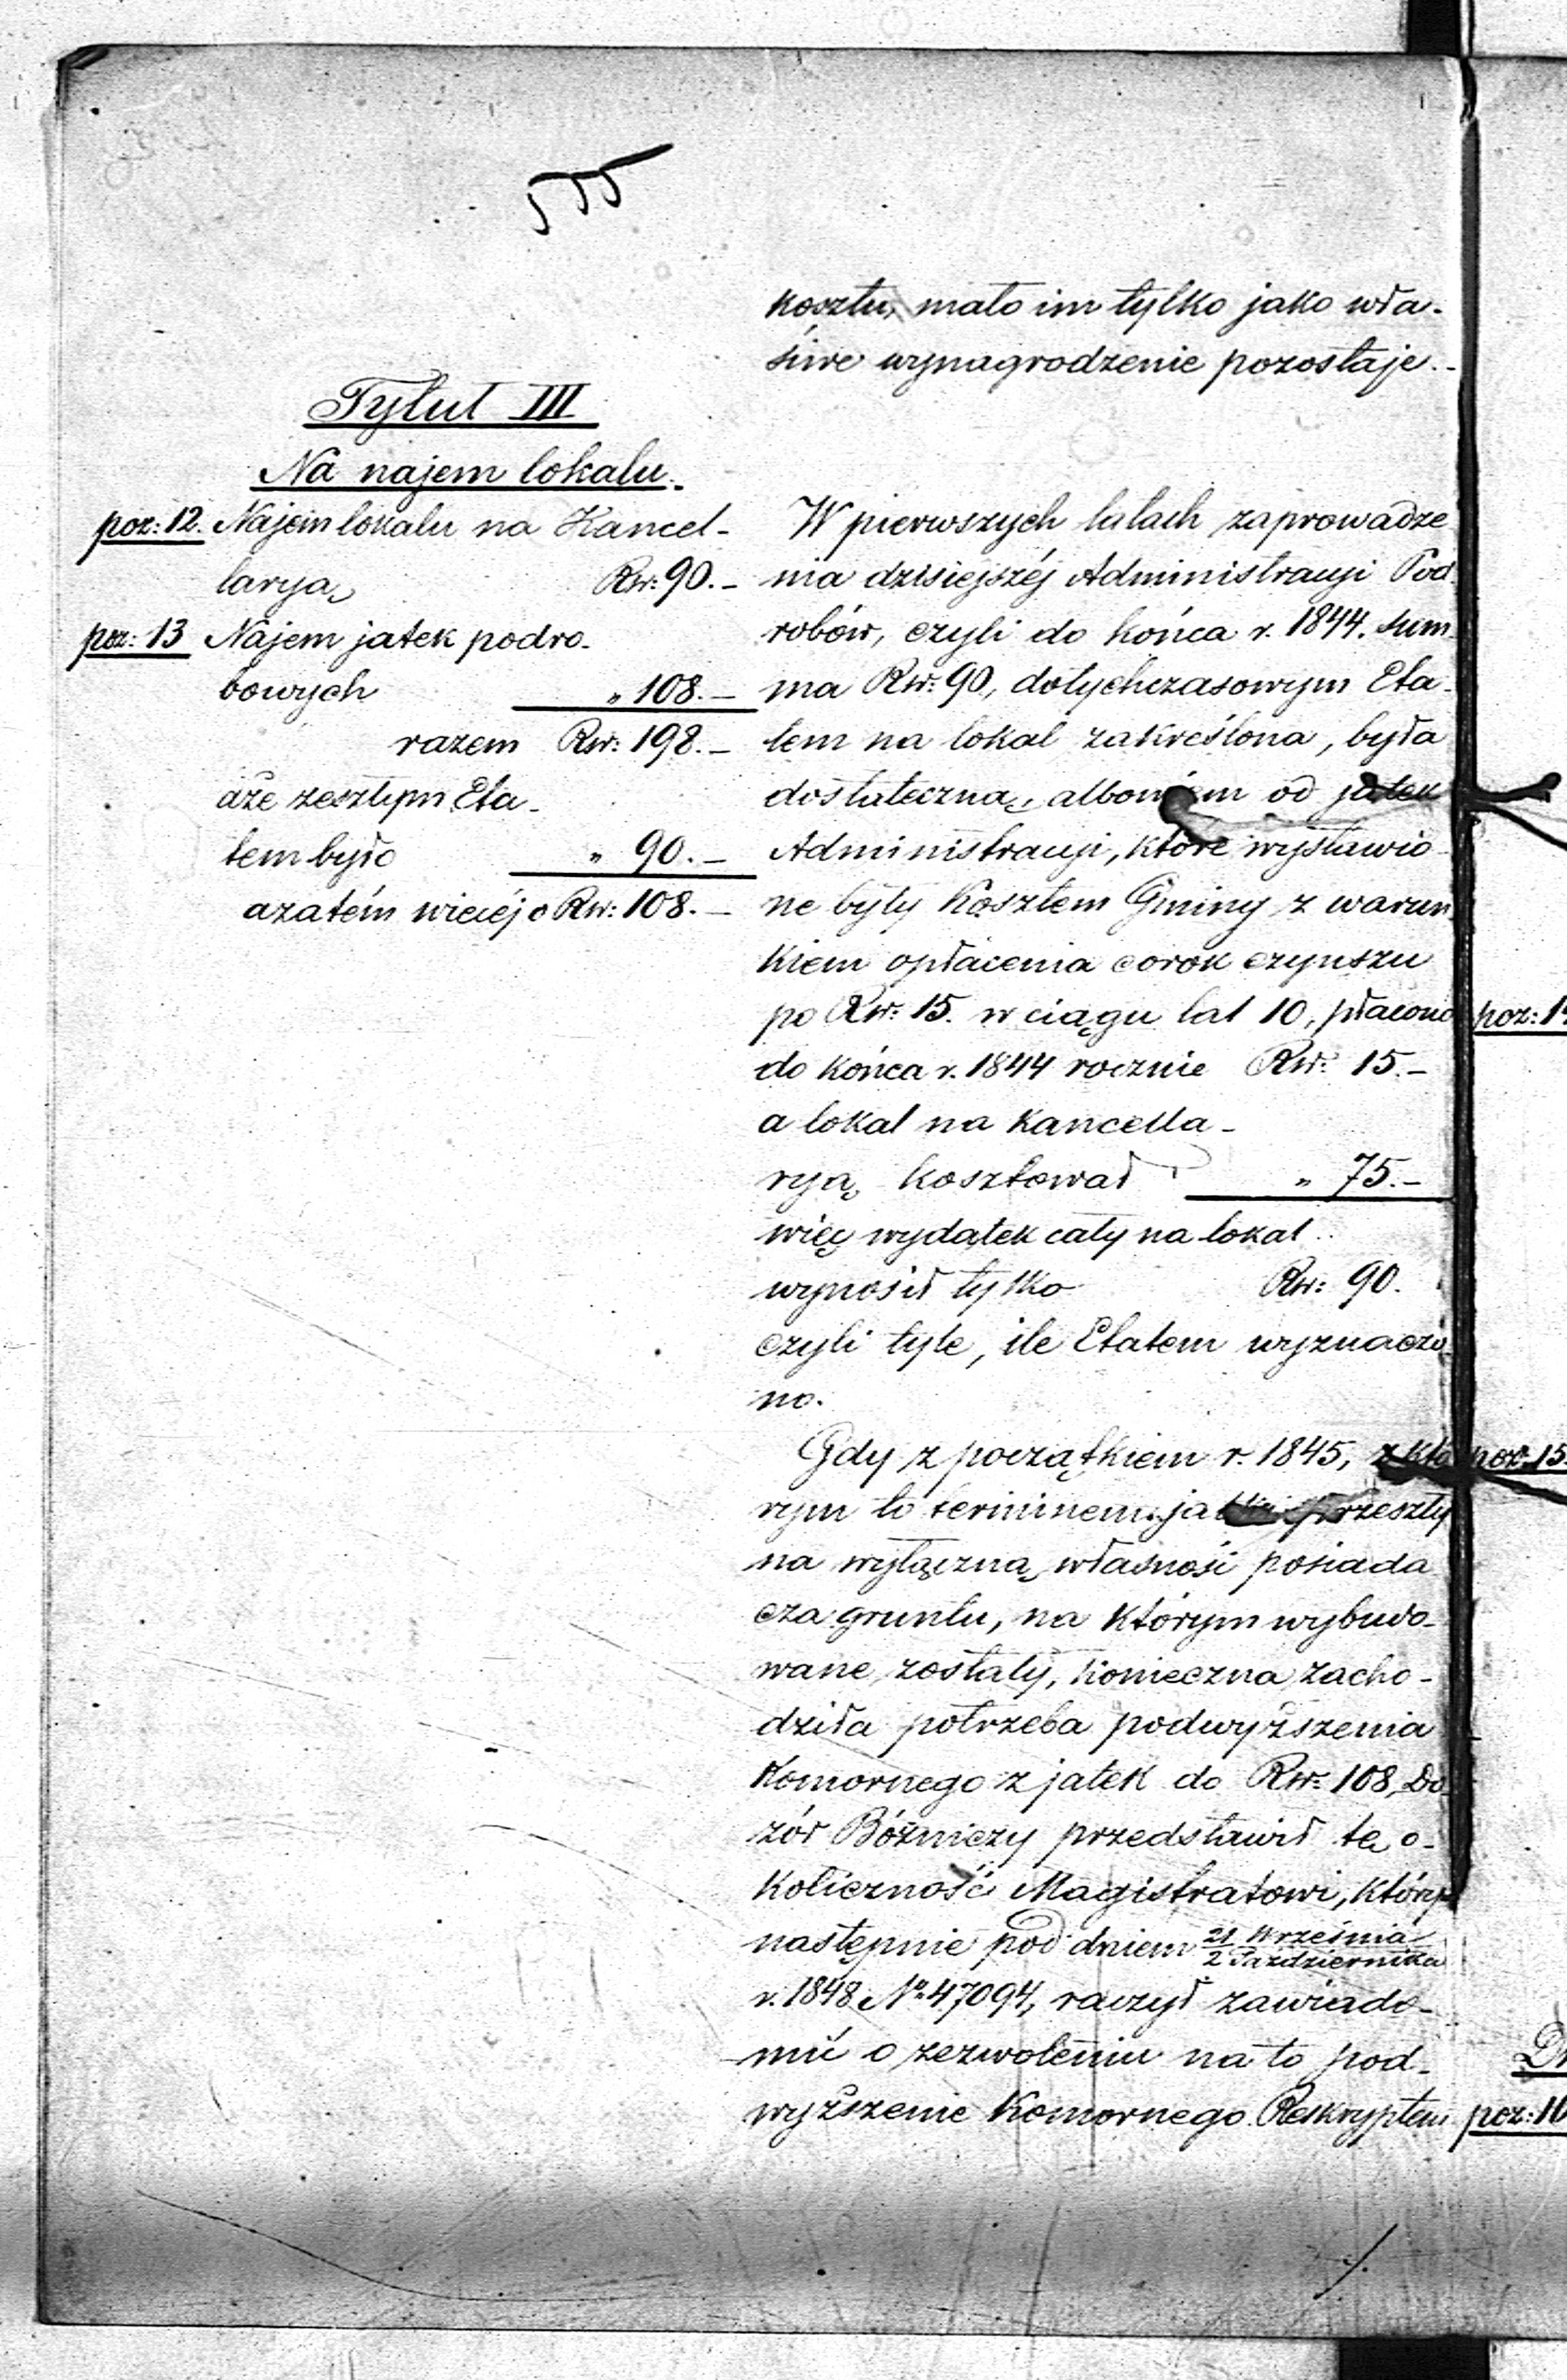 555
Tytuł III
Na najem lokalu.
poz: 12. Najem lokalu na Kancel-
laryą Rs: 90.-
poz: 13 Najem jatek podro-
bowych " 108.-
razem Rs: 198.-
aże zeszłym Eta-
tem było " 90.-
azatém więcéj o Rs: 108.-
kosztu, mało im tylko jako wła-
śiwe wynagrodzenie pozostaje.-
W pierwszych latach zaprowadze
nia dzisiejszéj Administracyi Pod
robów, czyli do końca r. 1844. Sum
ma Rs: 90, dotychczasowym Eta-
tem na lokal zakreślona, była
dostateczną, albowiem od jatek
Administracyi, które wystawio-
ne były Kosztem Gminy z warun
kiem opłacenia corok czynszu
po Rs: 15. w ciągu lat 10, płacono
do końca r. 1844 rocznie Rs: 15.-
a lokal na Kancella-
ryą kosztował " 75.-
więc wydatek cały na lokal
wynosił tylko Rs: 90.
czyli tyle, ile Etatem wyznaczo-
no.
Gdy z początkiem r. 1845, z któ
rym to terminem jatki przeszły
na wyłączną własność posiada
cza gruntu, na którym wybudo-
wane zostały, Konieczna zacho-
dziła potrzeba podwyższenia
Komornego z jatek do Rs: 108, Do
zór Bóżniczy przedstawił tę o-
koliczność Magistratowi, który
następnie pod dniem 21 Września / 2 Października
r. 1848 No 47094, raczył zawiado-
mić o zezwoleniu na to pod-
wyższenie Komornego Reskryptem
./.
poz: 1
poz. 15.
poz: 16